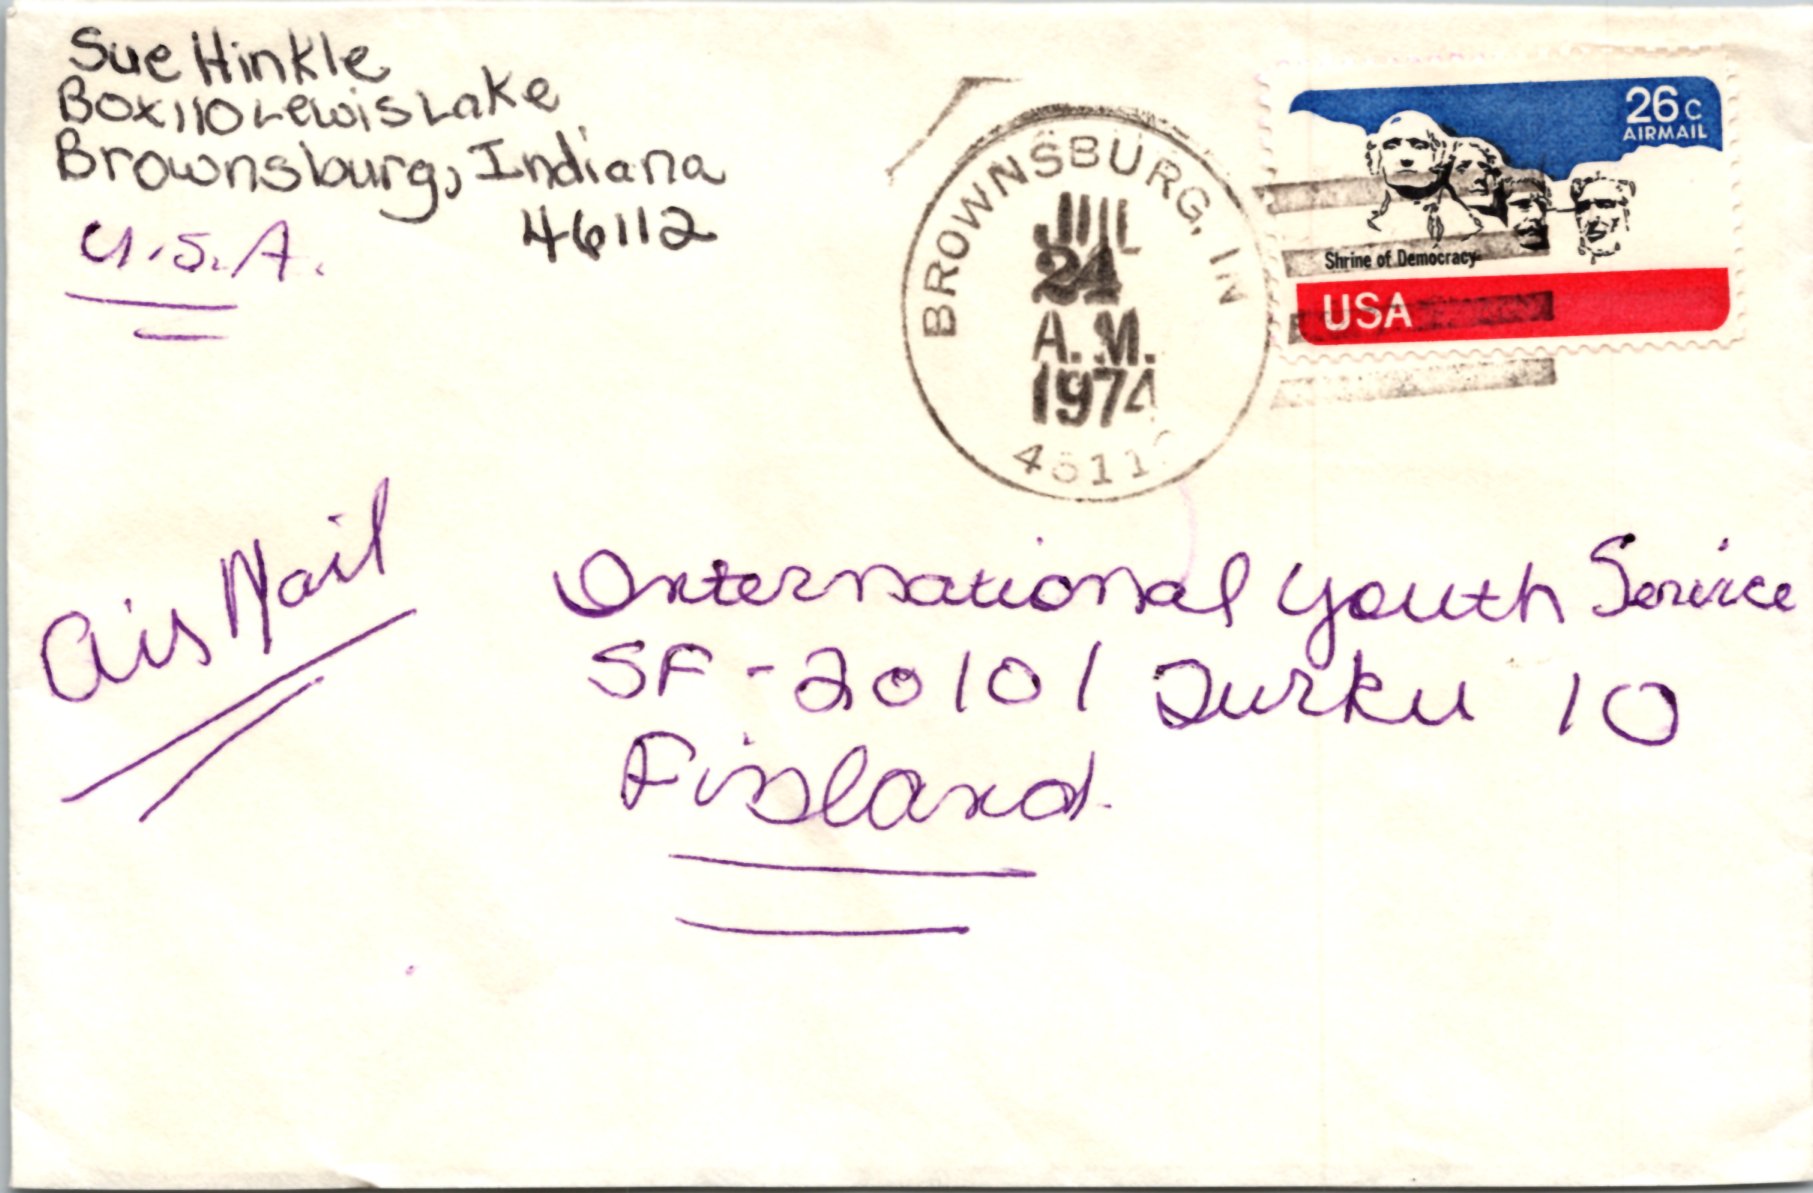 Sue Hinkle
Box 110 Lewis Lake
Brownsburg, Indiana
46112
U.S.A.
BROWNSBURG, IN
JUL
24
A.M.
1974
26c
AIRMAIL
Shrine of Democracy
USA
Air Mail
International Youth Service
SF-20101 Turku 10
Finland